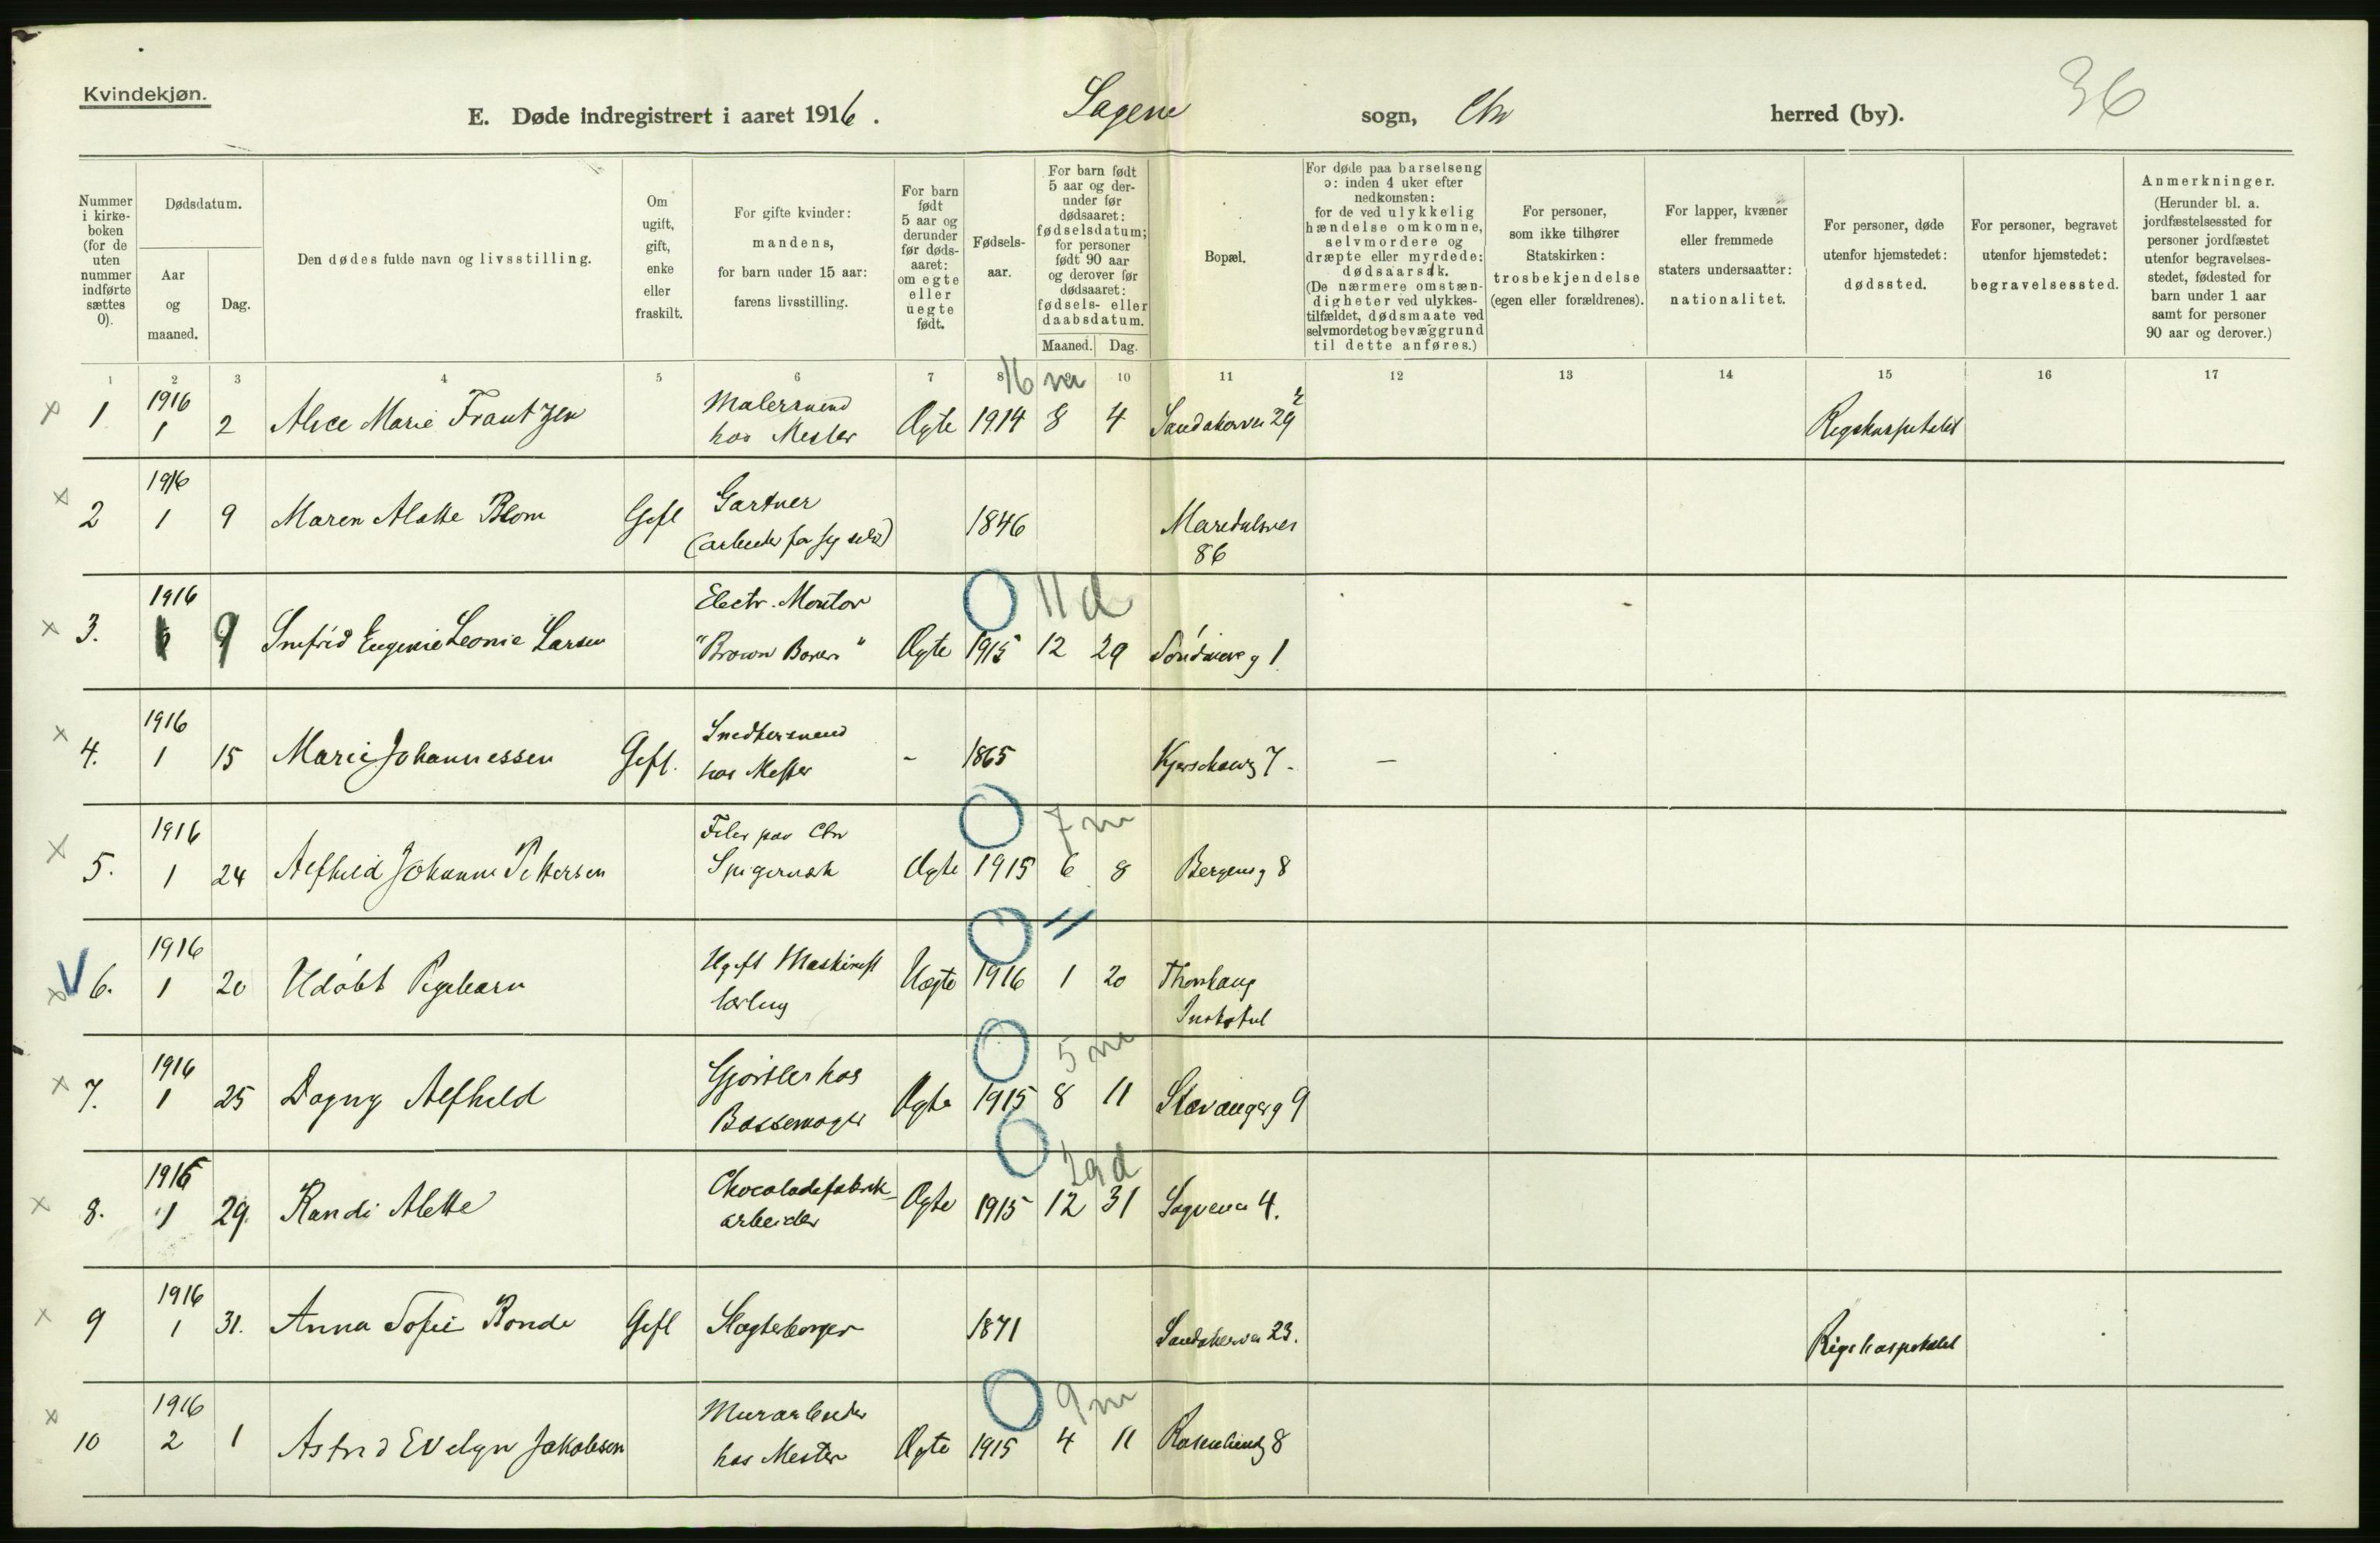 Kvindekjøn.
E. Døde indregistrert i aaret 1916. Sagene sogn, Chr herred (by). 36
Nummer i kirkeboken (for de uten nummer indførte sættes 0).
Dødsdatum.
Aar og maaned.
Dag.
Den dødes fulde navn og livsstilling.
Om ugift, gift, enke eller fraskilt.
For gifte kvinder: mandens, for barn under 15 aar: farens livsstilling.
For barn født 5 aar og derunder før dødsaaret: om egte eller uegte født.
Fødselsaar.
For barn født 5 aar og derunder før dødsaaret: fødselsdatum; for personer født 90 aar og derover før dødsaaret: fødsels- eller daabsdatum.
Maaned. Dag.
Bopæl.
For døde paa barselseng ɔ: inden 4 uker efter nedkomsten: for de ved ulykkelig hændelse omkomne, selvmordere og dræpte eller myrdede: dødsaarsak. (De nærmere omstændigheter ved ulykkestilfældet, dødsmaate ved selvmordet og bevæggrund til dette anføres.)
For personer, som ikke tilhører Statskirken: trosbekjendelse (egen eller forældrenes).
For lapper, kvæner eller fremmede staters undersaatter: nationalitet.
For personer, døde utenfor hjemstedet: dødssted.
For personer, begravet utenfor hjemstedet: begravelsessted.
Anmerkninger. (Herunder bl. a. jordfæstelsessted for personer jordfæstet utenfor begravelsesstedet, fødested for barn under 1 aar samt for personer 90 aar og derover.)
1 2 3 4 5 6 7 8 10 11 12 13 14 15 16 17
16 m
x 1 1916 1 2 Alice Marie Frantzen Malersvend hos Mester Ægte 1914 8 4 Sandakerveien 29 Rigshospitalet
x 2 1916 1 9 Maren Alette Blom Gift Gartner (arbeider for sig selv) 1846 Maridalsvei 86
0 11 d
x 3. 1916 9 Eugenie Leonie Larsen Electr. Montør "Brown Boveri" Ægte 1915 12 29 1
x 4. 1916 1 15 Marie Johannessen Gift. Snedkersvend hos Mester - 1865 7 - —
0 7 m
x 5. 1916 1 24 Alfhild Johanne Pettersen Filer paa Chr Spigerverk Ægte 1915 6 8 Bergensg 8
0 11
V x 6. 1916 1 20 Udøbt Pigebarn Ugift lærling Uægte 1916 1 20 Thorshaug Institut
0 5 m
x 7. 1916 1 25 Dagny Alfhild Gjørtler hos Ægte 1915 8 11 Stavangerg 9
0 29 d
x 8. 1916 1 29. Randi Alette Chocoladefabrik-arbeider Ægte 1915 12 31 Sagveien 4.
x 9 1916 1 31. Anna Sofie Bonde Gift 1871 Sandakerveien 23. Rigshospitalet
0 9 m
x 10 1916 2 1 Astrid Evelyn Jakobsen Murarbeider hos Mester Ægte 1915 4 11 8